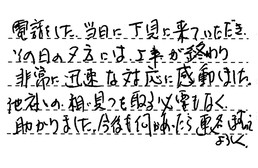 電話をした当日に下見に来ていただき
その日の夕方には工事が終わり
非常に迅速な対応に感動しました。
他社の相見つを取る必要もなく
助かりました。今後も何かあったら連絡します
よろしく